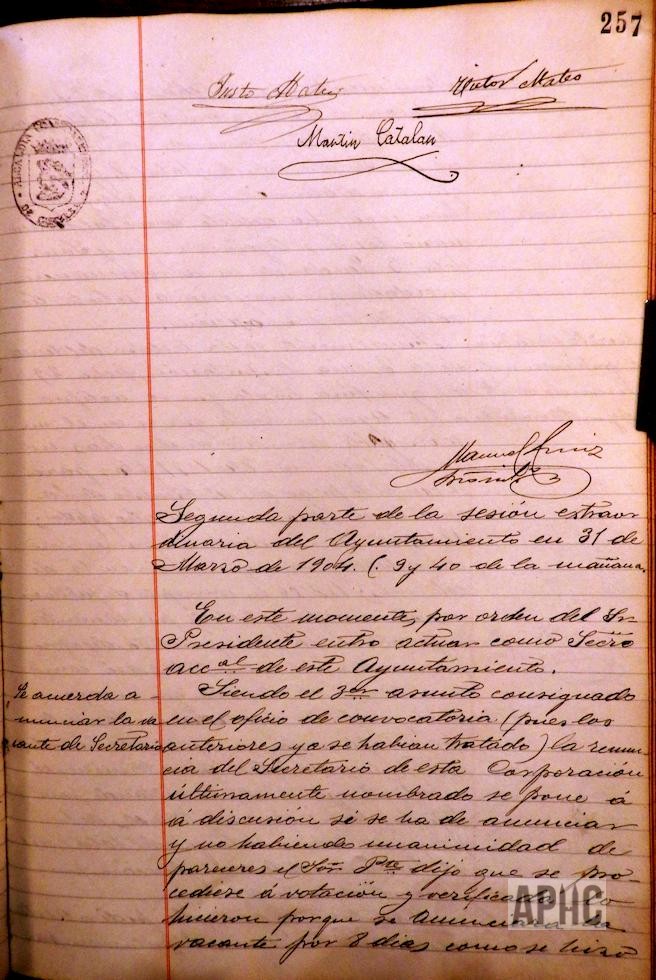 257
Justo Mateo
Victor Mateo
Martin Catalan
Manuel Ruiz
Segunda parte de la sesión extraor
dinaria del Ayuntamiento en 31 de
Marzo de 1904. (9 y 40 de la mañana.
En este momento, por orden del Sr
Presidente entro actuar como Secrio
accal de este Ayuntamiento.
Se acuerda a-
nunciar la va
cante de Secretario
Siendo el 3er asunto consignado
en el oficio de convocatoria (pues los
anteriores ya se habian tratado) la renun
cia del Secretario de esta Corporación
últimamente nombrado se pone á
á discusión si se ha de anunciar
y no habiendo unanimidad de
pareceres el Sor Pte dijo que se pro-
cediese á votación y verificada lo
hicieron porque se anunciara la
vacante por 8 dias como se hizo
APHC